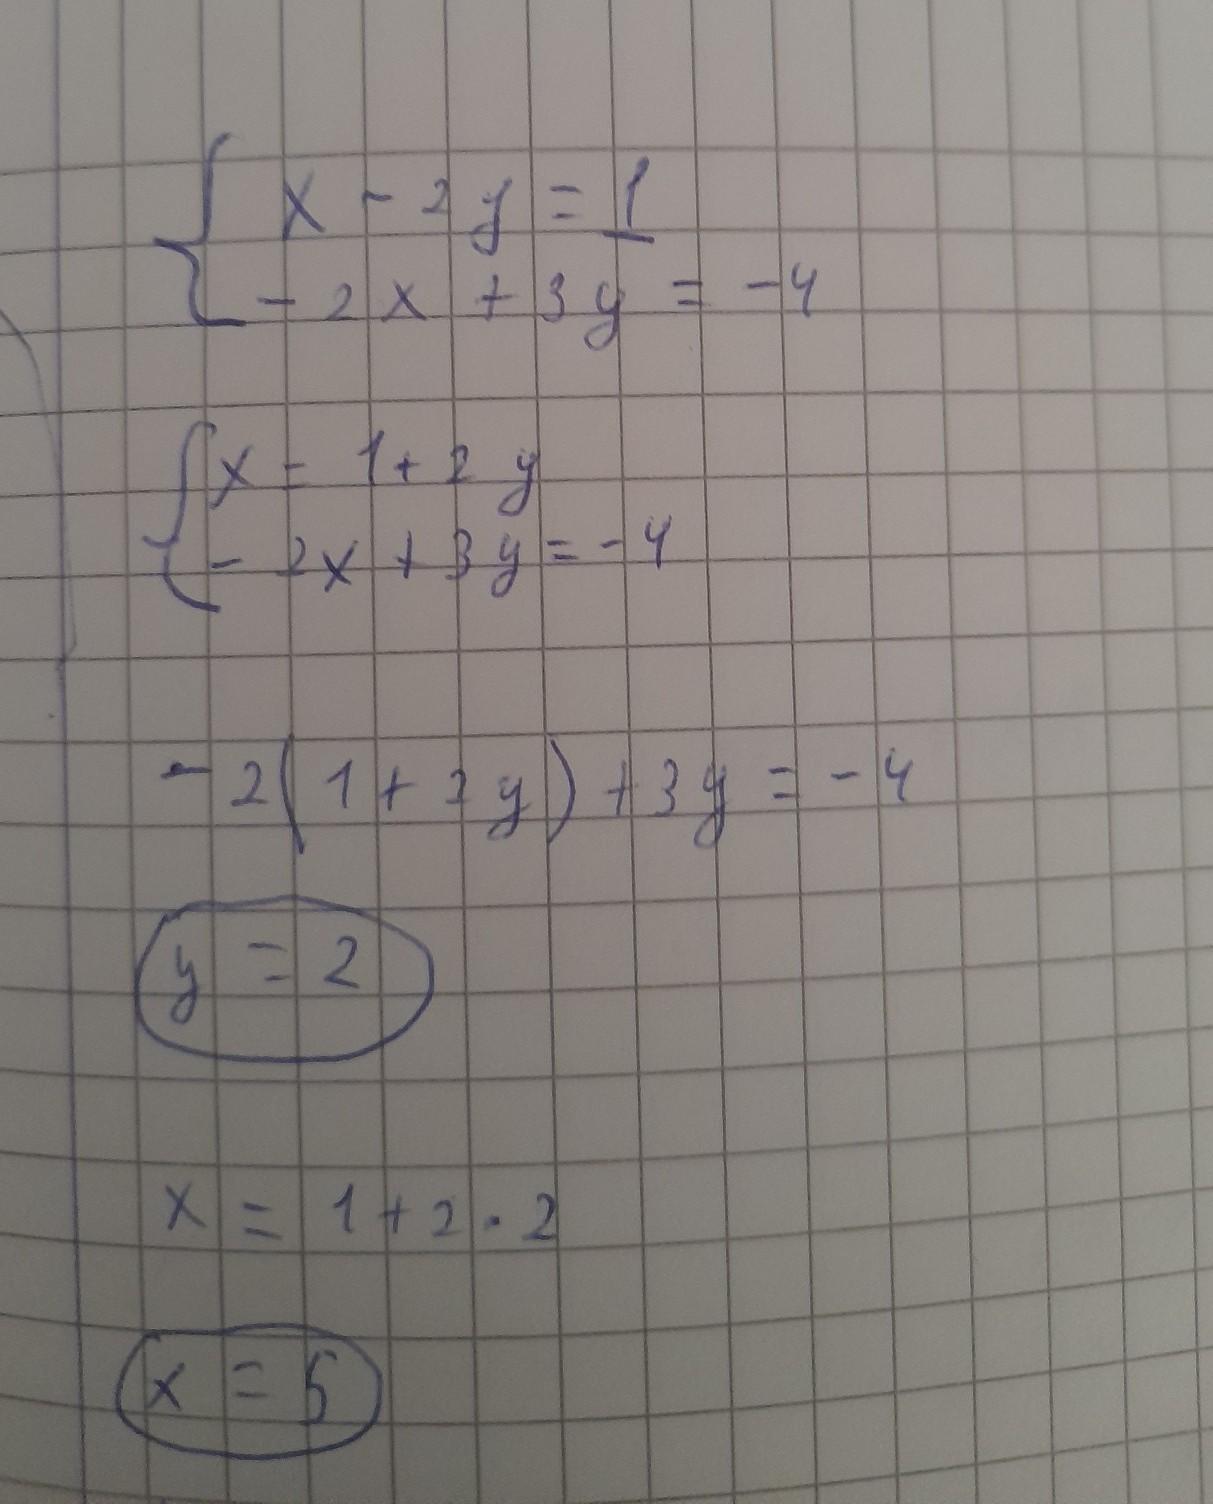 { x - 2y = 1
- 2x + 3y = -4
{ x = 1 + 2y
- 2x + 3y = -4
- 2(1 + 2y) + 3y = -4
y = 2
x = 1 + 2 · 2
x = 5